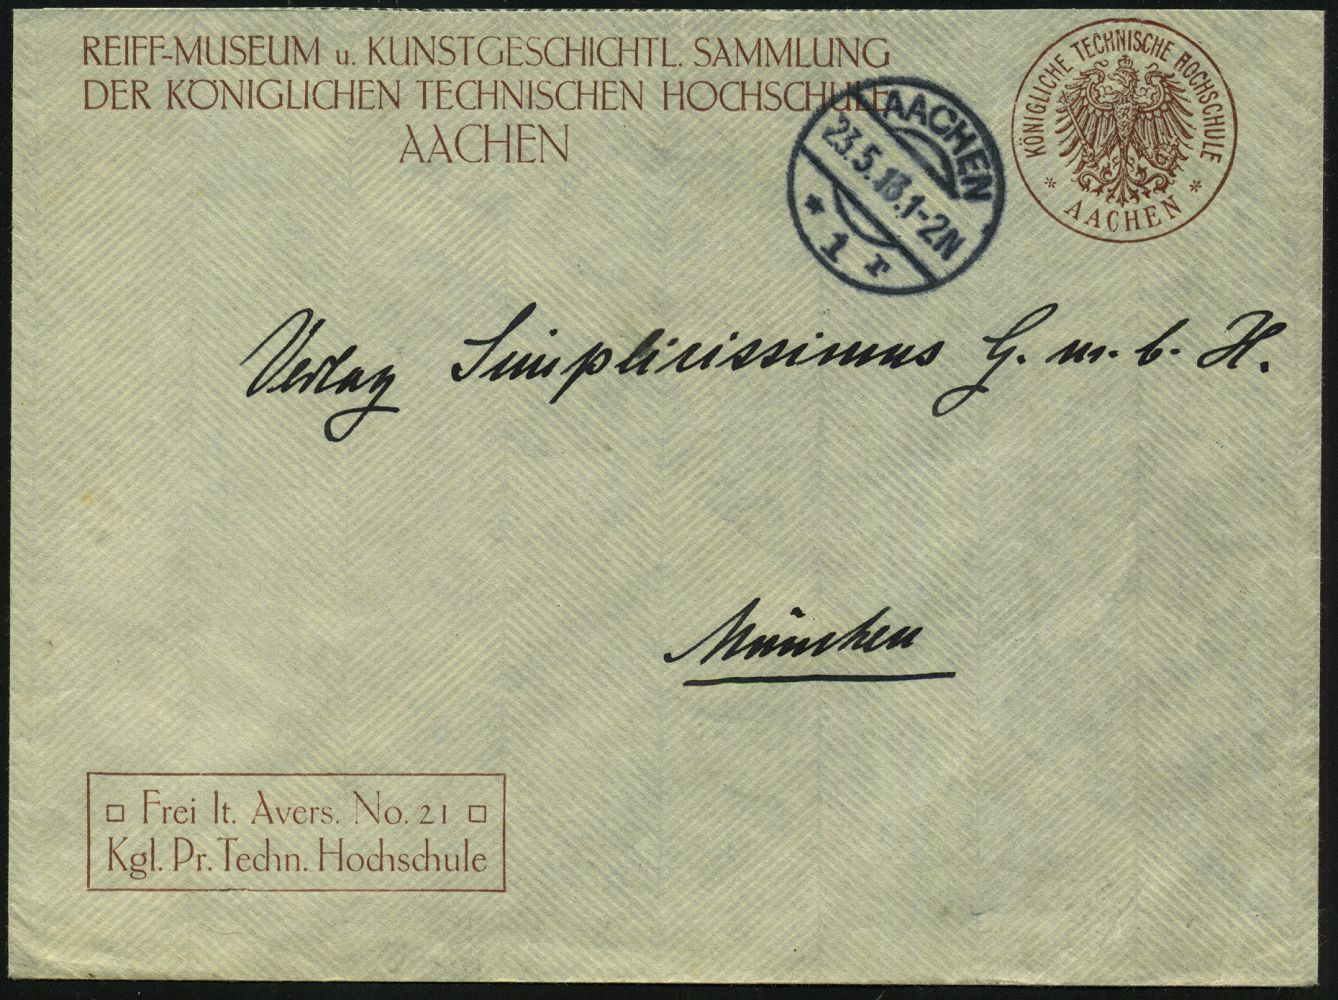 REIFF-MUSEUM u. KUNSTGESCHICHTL. SAMMLUNG
DER KÖNIGLICHEN TECHNISCHEN HOCHSCHULE
AACHEN
KÖNIGLICHE TECHNISCHE HOCHSCHULE
* AACHEN *
AACHEN
23.5.13.1-2N
* 1 r
Verlag Simplicissimus G. m. b. H.
München
Frei lt. Avers. No. 21
Kgl. Pr. Techn. Hochschule